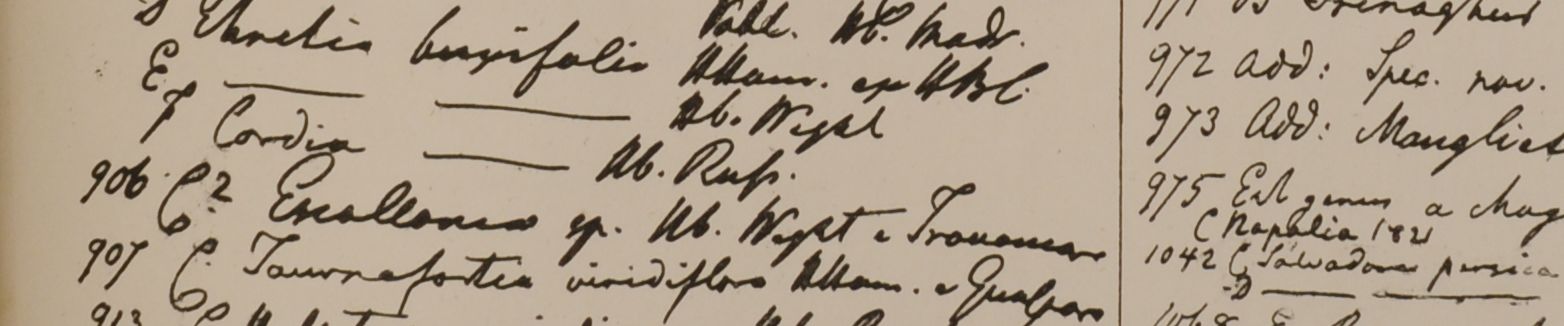 D Ehretia buxifolia Vahl. Hb. Madr.
E — — Hham. ex HBC.
F Cordia — Hb. Wight
Hb. Russ.
906 C 2 Escallonia sp. Hb. Wight e Travancor
907 C. Tournefortia viridiflora Hham. e Gualpara
913
972 Add: Spec. nov.
973 Add: Mangliet
975 Est genus a Mag
C Napalia 1821
1042 C Salvadora persica
D — —
1068